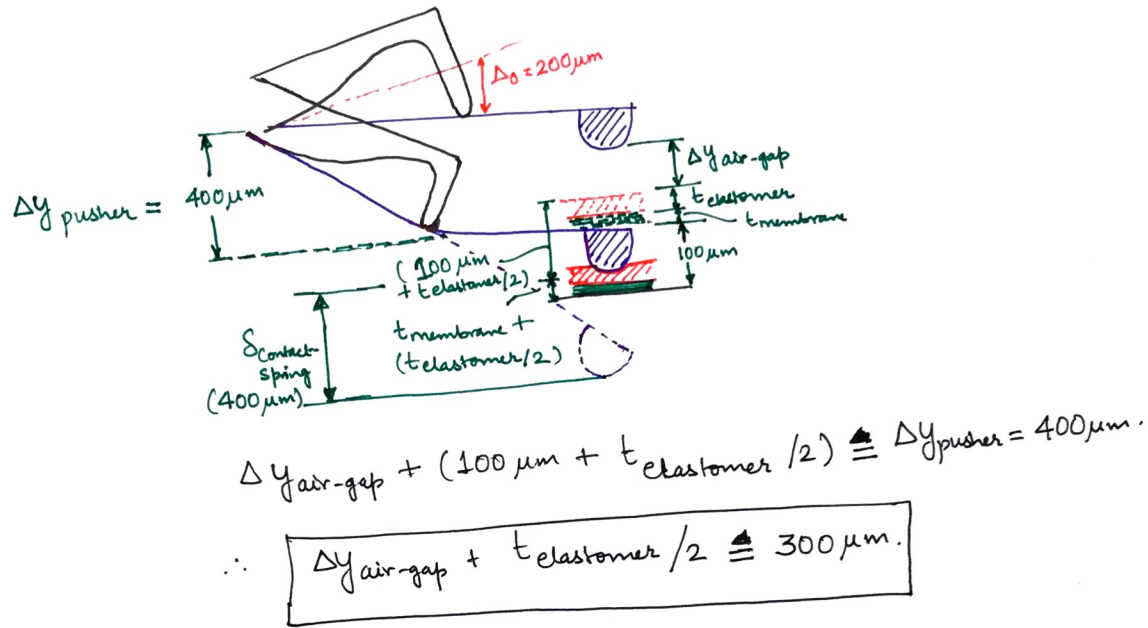 Δ₀ = 200μm
Δy pusher = 400μm
Δy air-gap
t elastomer
t membrane
100μm
(100μm
+ t elastomer/2)
t membrane +
(t elastomer/2)
δ contact-
spring
(400μm)
Δy air-gap + (100 μm + t elastomer /2) ≙ Δy pusher = 400μm.
∴ Δy air-gap + t elastomer /2 ≙ 300 μm.